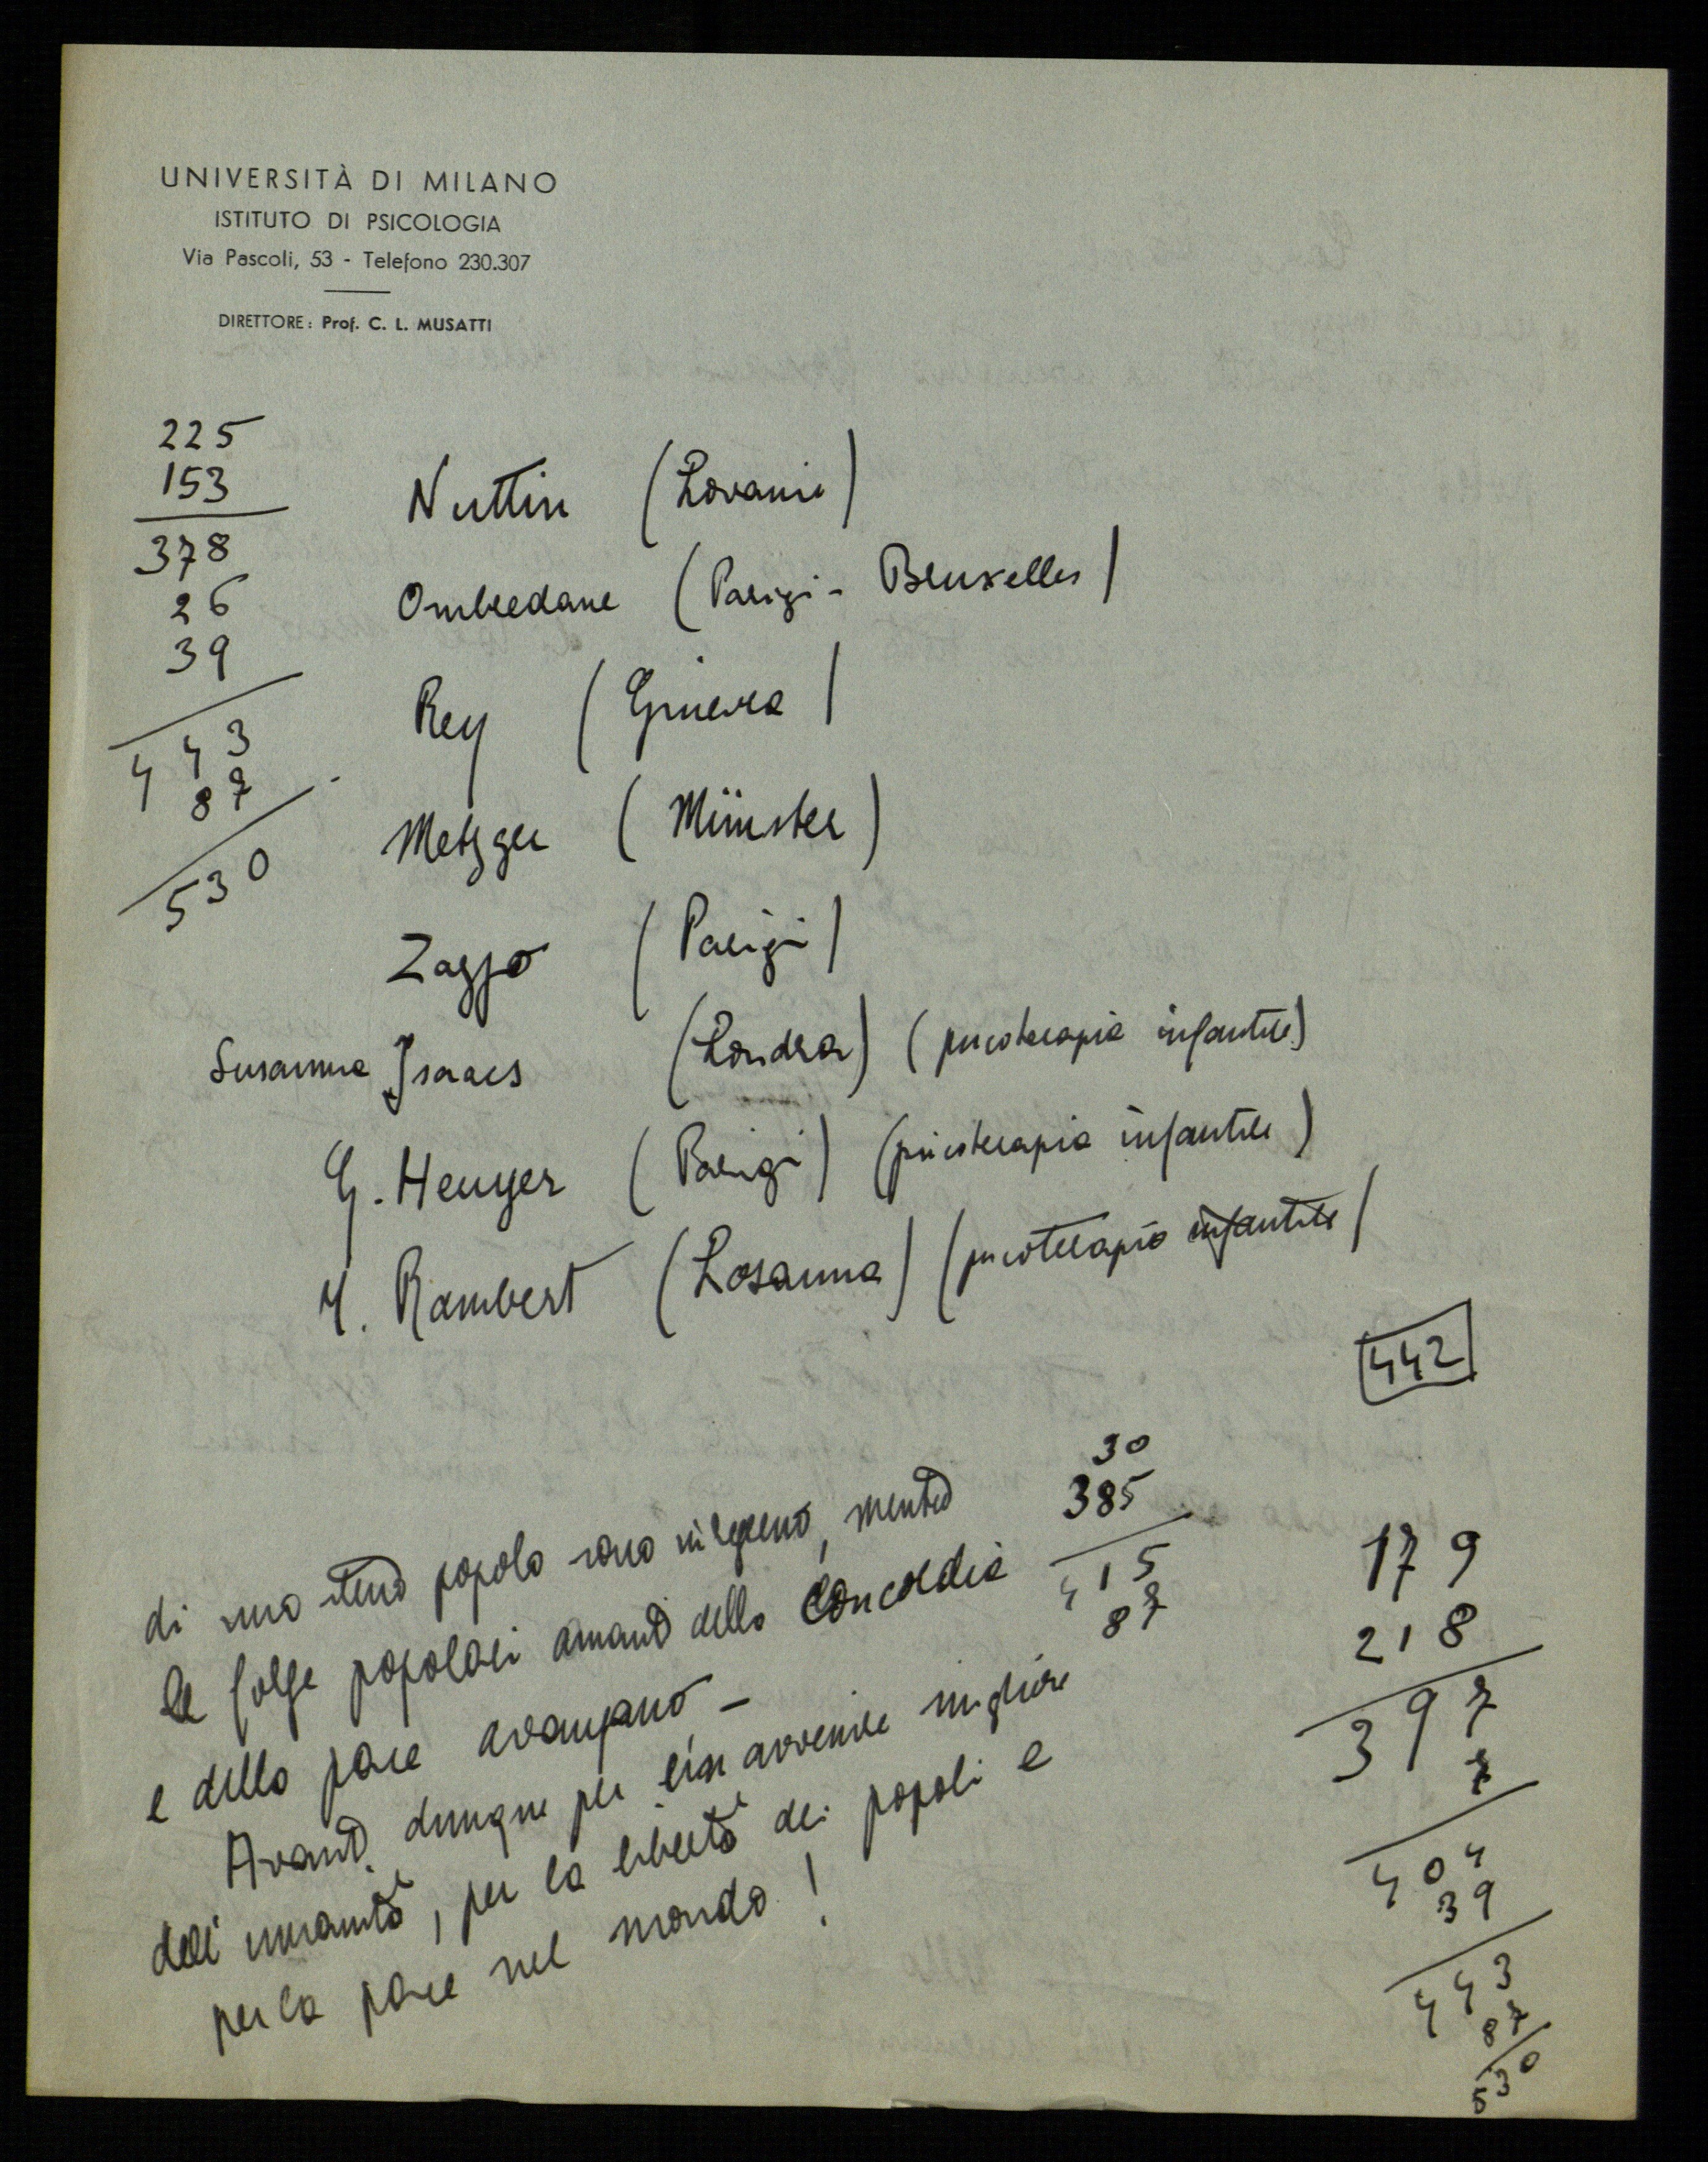 UNIVERSITÀ DI MILANO
ISTITUTO DI PSICOLOGIA
Via Pascoli, 53 - Telefono 230.307
DIRETTORE: Prof. C. L. MUSATTI
225
153
378
26
39
443
87
530
Nuttin (Lovanio)
Ombredane (Parigi - Bruxelles)
Rey (Ginevra)
Metzger (Münster)
Zazzo (Parigi)
Susanna Isaacs (Londra) (psicoterapia infantile)
G. Heuyer (Parigi) (psicoterapia infantile)
M. Rambert (Losanna) (psicoterapia infantile)
442
30
385
415
87
di uno stesso popolo sono mentre
le forze popolari amanti della Concordia
e della pace avanzano -
Avanti dunque per un avvenire migliore
dell'umanità, per la libertà dei popoli e
per la pace nel mondo!
179
218
397
7
404
39
443
87
530